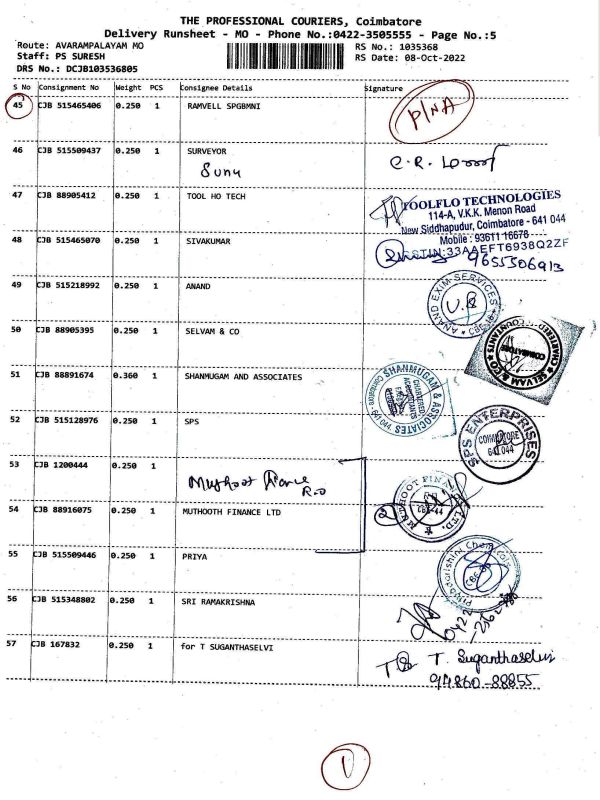 THE PROFESSIONAL COURIERS, Coimbatore
Delivery Runsheet - MO - Phone No.:0422-3505555 - Page No.:5
Route: AVARAMPALAYAM MO
RS No.: 1035368
Staff: PS SURESH
RS Date: 08-Oct-2022
DRS No.: DCJB103536805
S No Consignment No Weight PCS Consignee Details Signature
45 CJB 515465406 0.250 1 RAMVELL SPGBMNI P/NA
46 CJB 515509437 0.250 1 SURVEYOR
Sunu
47 CJB 88905412 0.250 1 TOOL HO TECH
TOOLFLO TECHNOLOGIES
114-A, V.K.K. Menon Road
New Siddhapudur, Coimbatore - 641 044
Mobile : 93611 16678
GSTIN:33AAEFT6938Q2ZF
48 CJB 515465070 0.250 1 SIVAKUMAR
9655306913
49 CJB 515218992 0.250 1 ANAND
ANAND EXIM SERVICES
50 CJB 88905395 0.250 1 SELVAM & CO
SELVAM & CO
CHARTERED ACCOUNTANTS
COIMBATORE
51 CJB 88891674 0.360 1 SHANMUGAM AND ASSOCIATES
SHANMUGAM & ASSOCIATES
CHARTERED
ACCOUNTANTS
Coimbatore - 641 044
52 CJB 515128976 0.250 1 SPS
SPS ENTERPRISES
COIMBATORE
641 044
53 CJB 1200444 0.250 1
Muthoot Finance
R.O
54 CJB 88916075 0.250 1 MUTHOOTH FINANCE LTD
2
MUTHOOT FINANCE LTD.
55 CJB 515509446 0.250 1 PRIYA
56 CJB 515348802 0.250 1 SRI RAMAKRISHNA
57 CJB 167832 0.250 1 for T SUGANTHASELVI
T. Suganthaselvi
94860-88855